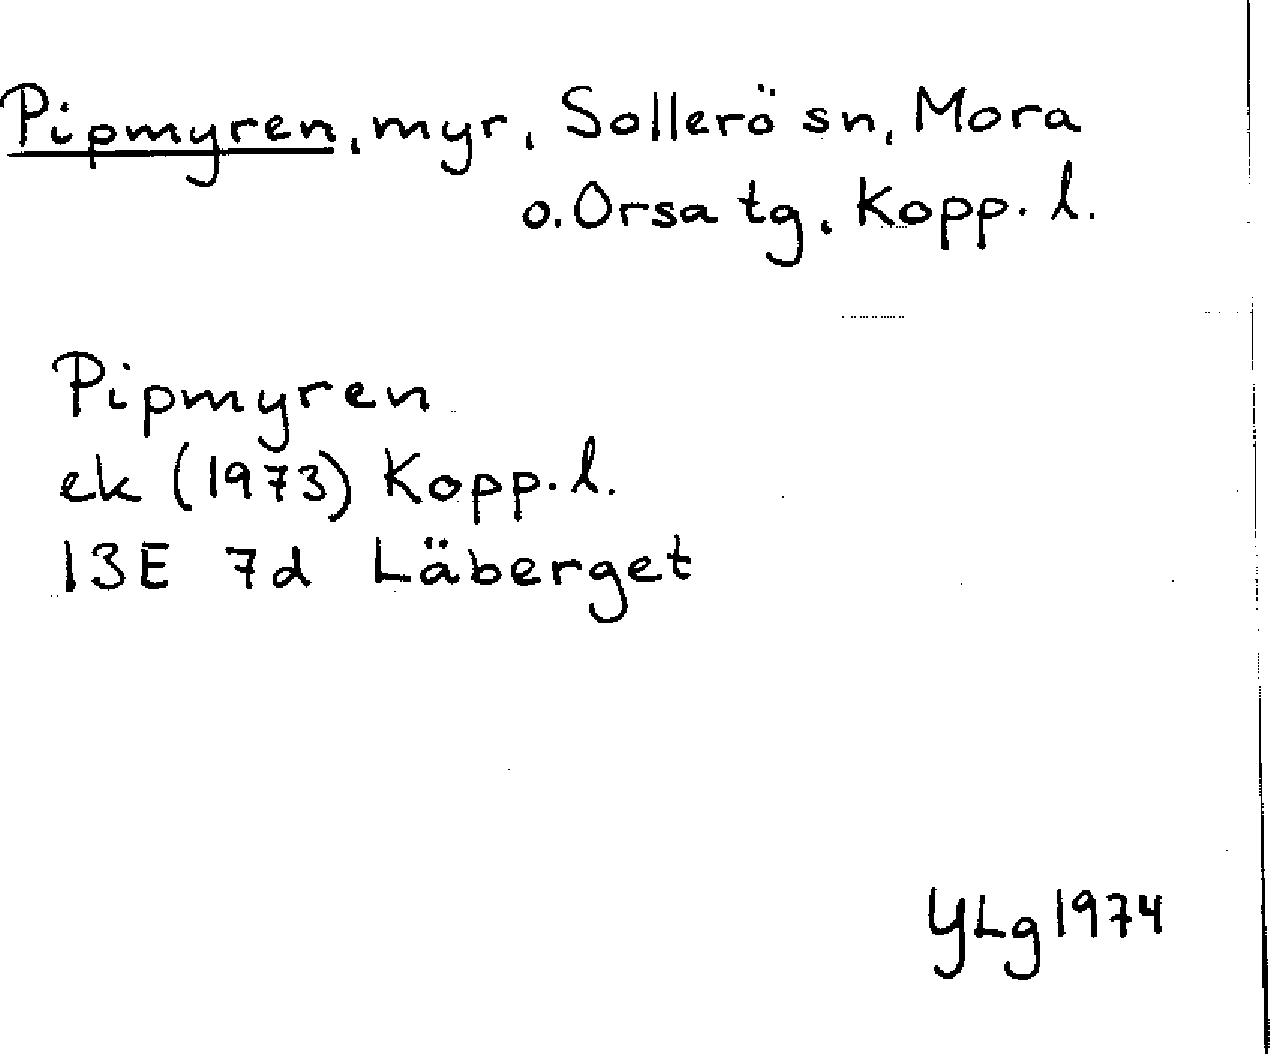 Pipmyren, myr, Sollerö sn, Mora
o. Orsa tg. Kopp. l.
Pipmyren
ek (1973) Kopp. l.
13E 7d Läberget
YLg 1974